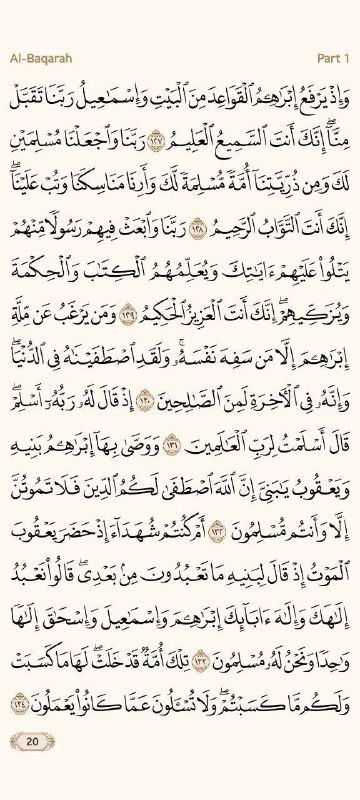 Al-Baqarah Part 1
وَإِذْ يَرْفَعُ إِبْرَٰهِـۧمُ ٱلْقَوَاعِدَ مِنَ ٱلْبَيْتِ وَإِسْمَٰعِيلُ رَبَّنَا تَقَبَّلْ
مِنَّآ ۖ إِنَّكَ أَنتَ ٱلسَّمِيعُ ٱلْعَلِيمُ ١٢٧ رَبَّنَا وَٱجْعَلْنَا مُسْلِمَيْنِ
لَكَ وَمِن ذُرِّيَّتِنَآ أُمَّةً مُّسْلِمَةً لَّكَ وَأَرِنَا مَنَاسِكَنَا وَتُبْ عَلَيْنَآ ۖ
إِنَّكَ أَنتَ ٱلتَّوَّابُ ٱلرَّحِيمُ ١٢٨ رَبَّنَا وَٱبْعَثْ فِيهِمْ رَسُولًا مِّنْهُمْ
يَتْلُوا۟ عَلَيْهِمْ ءَايَٰتِكَ وَيُعَلِّمُهُمُ ٱلْكِتَٰبَ وَٱلْحِكْمَةَ
وَيُزَكِّيهِمْ ۚ إِنَّكَ أَنتَ ٱلْعَزِيزُ ٱلْحَكِيمُ ١٢٩ وَمَن يَرْغَبُ عَن مِّلَّةِ
إِبْرَٰهِـۧمَ إِلَّا مَن سَفِهَ نَفْسَهُۥ ۚ وَلَقَدِ ٱصْطَفَيْنَٰهُ فِى ٱلدُّنْيَا ۖ
وَإِنَّهُۥ فِى ٱلْءَاخِرَةِ لَمِنَ ٱلصَّٰلِحِينَ ١٣٠ إِذْ قَالَ لَهُۥ رَبُّهُۥٓ أَسْلِمْ ۖ
قَالَ أَسْلَمْتُ لِرَبِّ ٱلْعَٰلَمِينَ ١٣١ وَوَصَّىٰ بِهَآ إِبْرَٰهِـۧمُ بَنِيهِ
وَيَعْقُوبُ يَٰبَنِىَّ إِنَّ ٱللَّهَ ٱصْطَفَىٰ لَكُمُ ٱلدِّينَ فَلَا تَمُوتُنَّ
إِلَّا وَأَنتُم مُّسْلِمُونَ ١٣٢ أَمْ كُنتُمْ شُهَدَآءَ إِذْ حَضَرَ يَعْقُوبَ
ٱلْمَوْتُ إِذْ قَالَ لِبَنِيهِ مَا تَعْبُدُونَ مِنۢ بَعْدِى ۖ قَالُوا۟ نَعْبُدُ
إِلَٰهَكَ وَإِلَٰهَ ءَابَآئِكَ إِبْرَٰهِـۧمَ وَإِسْمَٰعِيلَ وَإِسْحَٰقَ إِلَٰهًا
وَٰحِدًا وَنَحْنُ لَهُۥ مُسْلِمُونَ ١٣٣ تِلْكَ أُمَّةٌ قَدْ خَلَتْ ۖ لَهَا مَا كَسَبَتْ
وَلَكُم مَّا كَسَبْتُمْ ۖ وَلَا تُسْـَٔلُونَ عَمَّا كَانُوا۟ يَعْمَلُونَ ١٣٤
20